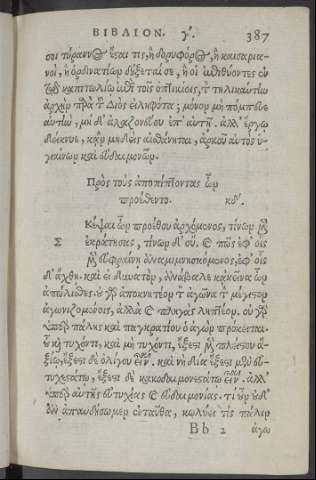 ΒΙΒΛΙΟΝ. γ'. 387
σοι τύραννος ἔσαι τις, ἢ δορυφόρος, ἢ καισαρια-
νοὶ, ἢ ὀρδινατίων δήξεταί σε, ἢ οἱ ἐπιθύοντες ἐν
τῷ καπιτωλίῳ ἐπὶ τοῖς ὀπικίοις, τὸν τηλικαύτην
ἀρχὴν παρὰ τοῦ Διὸς εἰληφότα; μόνον μὴ πόμπευε
αὐτὴν, μὴ δ' ἀλαζονεύου ἐπ' αὐτῇ. ἀλλ' ἔργῳ
δείκνυε, κἂν μηδεὶς αἰσθάνηται, ἀρκοῦ αὐτὸς ὑ-
γιαίνων καὶ εὐδαιμονῶν.
Πρὸς τοὺς ἀποπίπτοντας ὧν
προέθεντο. κδ'.
Σκέψαι ὧν προέθου ἀρχόμενος, τίνων μὲν
ἐκράτησας, τίνων δ' οὔ. καὶ πῶς ἐφ' οἷς
μὲν εὐφραίνῃ ἀναμιμνησκόμενος, ἐφ' οἷς
δ' ἄχθῃ. καὶ εἰ δυνατὸν, ἀνάλαβε κἀκεῖνα ὧν
ἀπώλισθες. οὐ γὰρ ἀποκνητέον τὸν ἀγῶνα τὸν μέγιστον
ἀγωνιζομένοις, ἀλλὰ καὶ πληγὰς ληπτέον. οὐ γὰρ
ὑπὲρ πάλης καὶ παγκρατίου ὁ ἀγὼν πρόκειται.
οὗ καὶ τυχόντι, καὶ μὴ τυχόντι, ἔξεστι μὲν πλείστου ἀ-
ξίῳ, ἔξεστι δὲ ὀλίγου εἶναι. καὶ νὴ δία ἔξεστι μὲν εὐ-
τυχεστάτῳ, ἔξεστι δὲ κακοδαιμονεστάτῳ εἶναι. ἀλλ'
ὑπὲρ αὐτῆς εὐτυχίας καὶ εὐδαιμονίας. τί οὖν οὐδ'
ἂν ἀπαυδήσωμεν ἐνταῦθα, κωλύει τὶς πάλιν
Bb 2 ἀγω